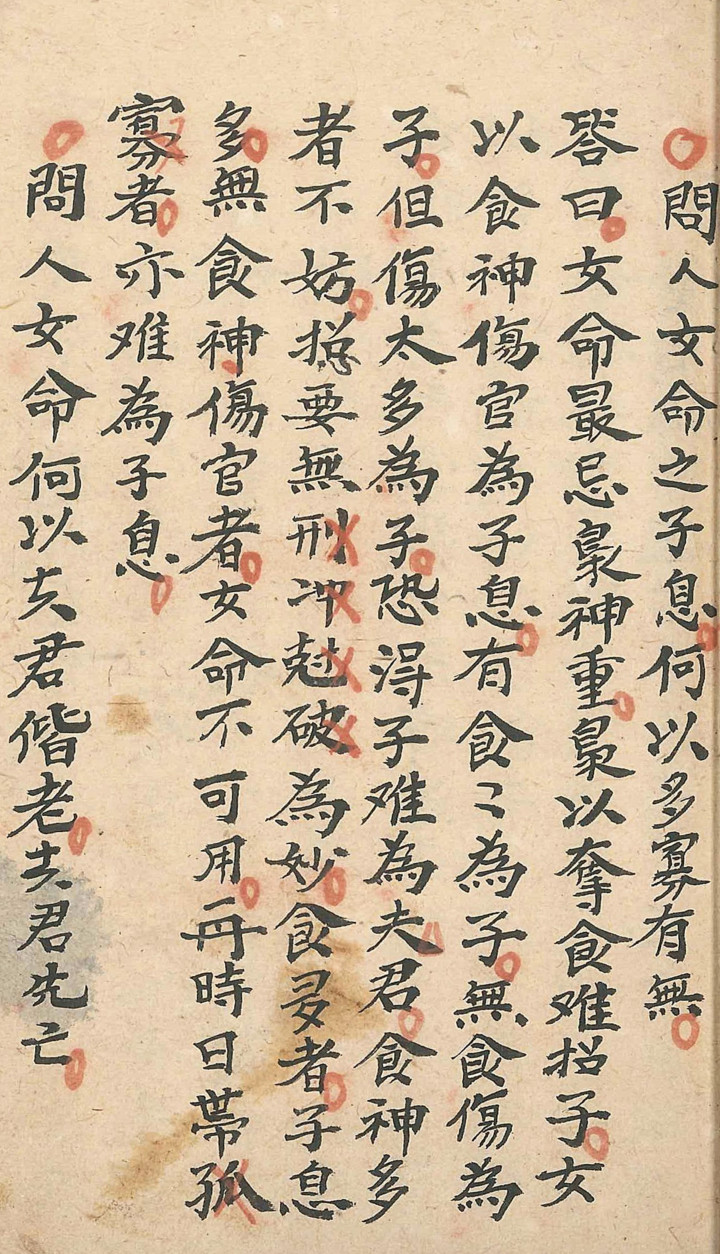 問人女命之子息何以多寡有無
答曰女命最忌梟神重梟以奪食难招子女
以食神傷官為子息有食〻為子無食傷為
子但傷太多為子恐淂子难為夫君食神多
者不妨揔要無刑冲尅破為妙食多者子息
多無食神傷官者女命不可用再時日帶孤
寡者亦难為子息
問人女命何以夫君偕老夫君先亡